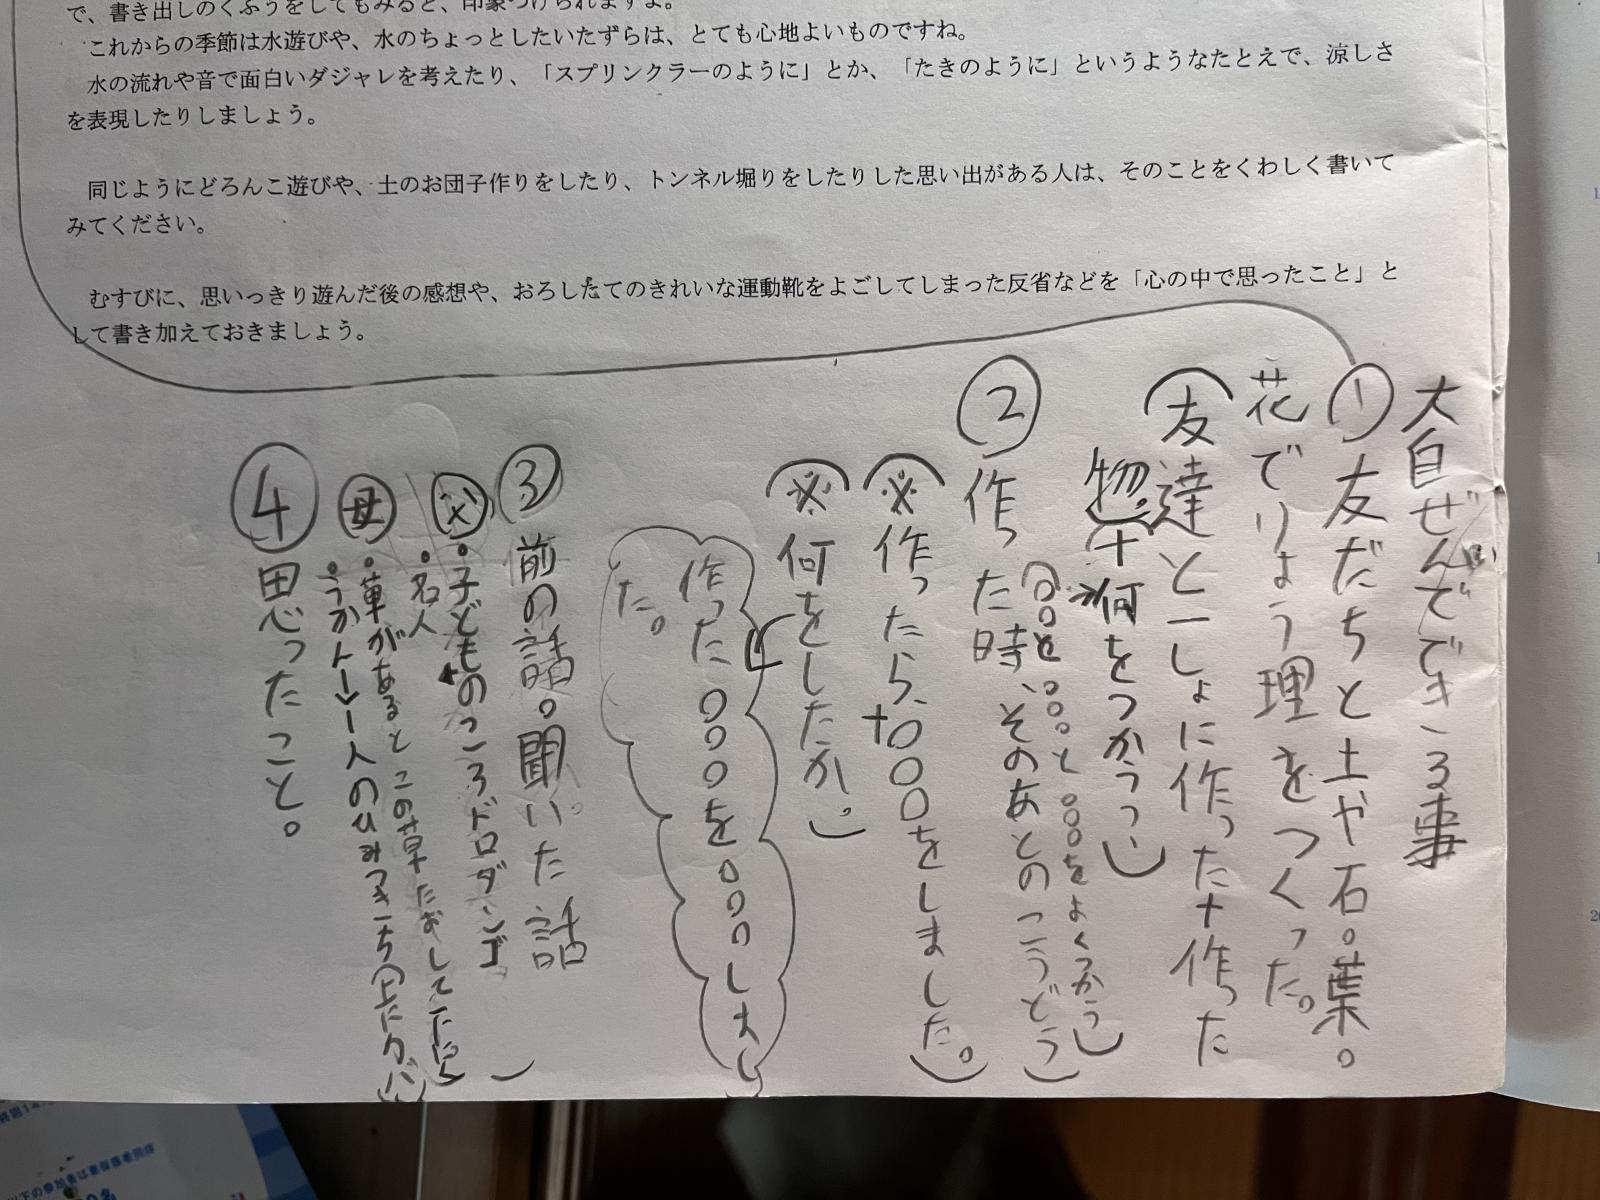 で、書き出しのくふうをしてもみると、印象づけられますよ。
これからの季節は水遊びや、水のちょっとしたいたずらは、とても心地よいものですね。
水の流れや音で面白いダジャレを考えたり、「スプリンクラーのように」とか、「たきのように」というようなたとえで、涼しさ
を表現したりしましょう。
同じようにどろんこ遊びや、土のお団子作りをしたり、トンネル堀りをしたりした思い出がある人は、そのことをくわしく書いて
みてください。
むすびに、思いっきり遊んだ後の感想や、おろしたてのきれいな運動靴をよごしてしまった反省などを「心の中で思ったこと」と
して書き加えておきましょう。
大自ぜんでできる事
① 友だちと土や石。葉。
花でりょう理をつくった。
(友達と一しょに作った+作った
物。+何をつかう。)
(○○と○○○と○○○をよくつかう)
② 作った時、そのあとのこうどう)
(※作ったら、+○○○をしました。)
(※何をしたか。)
作った○○○を○○○しまし
た。
③ 前の話。聞いた話
父 ・子どものころドロダンゴ
・名人
母 ・草があるとこの草たおして
・うかん→一人のひみつきち(上にカバ
④ 思ったこと。